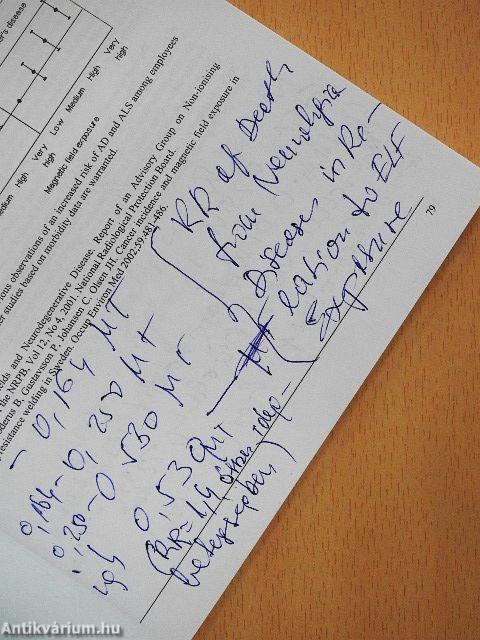 er's disease
Medium
High
Very
high
Low
Medium
High
Very
high
Magnetic field exposure
ious observations of an increased risk of AD and ALS among employees
er studies based on morbidity data are warranted.
ields and Neurodegenerative Disease, Report of an Advisory Group on Non-ionising
the NRPB, Vol 12, No 4, 2001. National Radiological Protection Board.
oderus B, Gustavsson P, Johansen C, Olsen JH. Cancer incidence and magnetic field exposure in
resistance welding in Sweden. Occup Environ Med 2002;59:481-486.
79
RR of Death
from
Diseases in Re-
lation to ELF
Exposure
- 0,164 μT
0,164-0,250 μT
0,250-0,530 μT
0,53 μT
(RR= 1,4
betegségben)
Antikvárium.hu